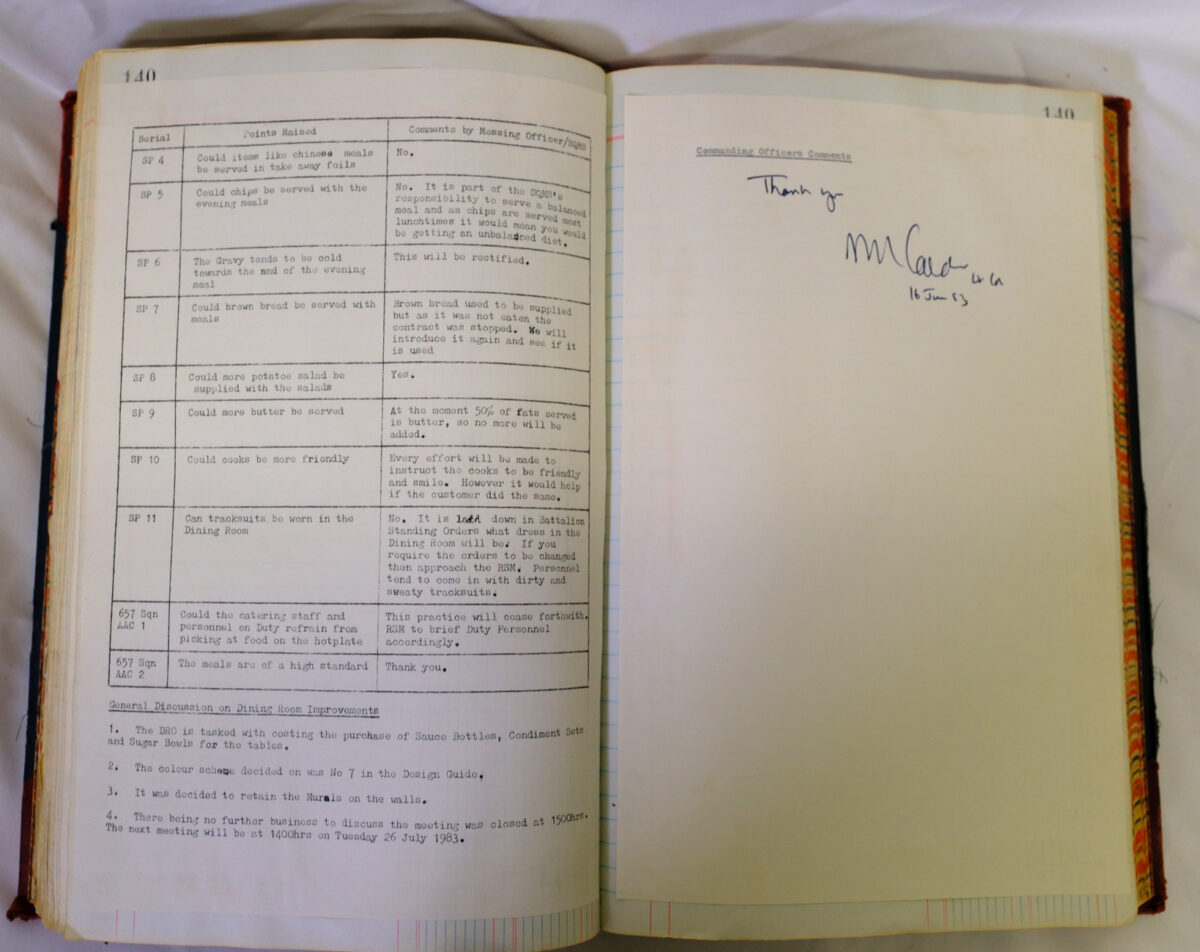 140
Serial Points Raised Comments by Messing Officer/SQMS
SP 4 Could items like chinese meals No.
be served in take away foils
SP 5 Could chips be served with the No. It is part of the SQMS's
evening meals responsibility to serve a balanced
meal and as chips are served most
lunchtimes it would mean you would
be getting an unbalanced diet.
SP 6 The Gravy tends to be cold This will be rectified.
towards the end of the evening
meal
SP 7 Could brown bread be served with Brown bread used to be supplied
meals but as it was not eaten the
contract was stopped. We will
introduce it again and see if it
is used
SP 8 Could more potatoe salad be Yes.
supplied with the salads
SP 9 Could more butter be served At the moment 50% of fats served
is butter, so no more will be
added.
SP 10 Could cooks be more friendly Every effort will be made to
instruct the cooks to be friendly
and smile. However it would help
if the customer did the same.
SP 11 Can tracksuits be worn in the No. It is down in Battalion
Dining Room Standing Orders what dress in the
Dining Room will be. If you
require the orders to be changed
then approach the RSM. Personnel
tend to come in with dirty and
sweaty tracksuits.
657 Sqn Could the catering staff and This practice will cease forthwith.
AAC 1 personnel on Duty refrain from RSM to brief Duty Personnel
picking at food on the hotplate accordingly.
657 Sqn The meals are of a high standard Thank you.
AAC 2
General Discussion on Dining Room Improvements
1. The DRO is tasked with costing the purchase of Sauce Bottles, Condiment Sets
and Sugar Bowls for the tables.
2. The colour scheme decided on was No 7 in the Design Guide.
3. It was decided to retain the Murals on the walls.
4. There being no further business to discuss the meeting was closed at 1500hrs.
The next meeting will be at 1400hrs on Tuesday 26 July 1983.
140
Commanding Officers Comments
Thank you
Lt Col
16 Jun 83